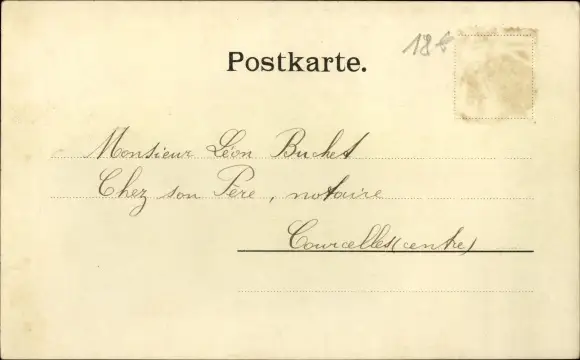 18€
Postkarte.
Monsieur Léon Buchet
Chez son Père, notaire
Courcelles (centre)